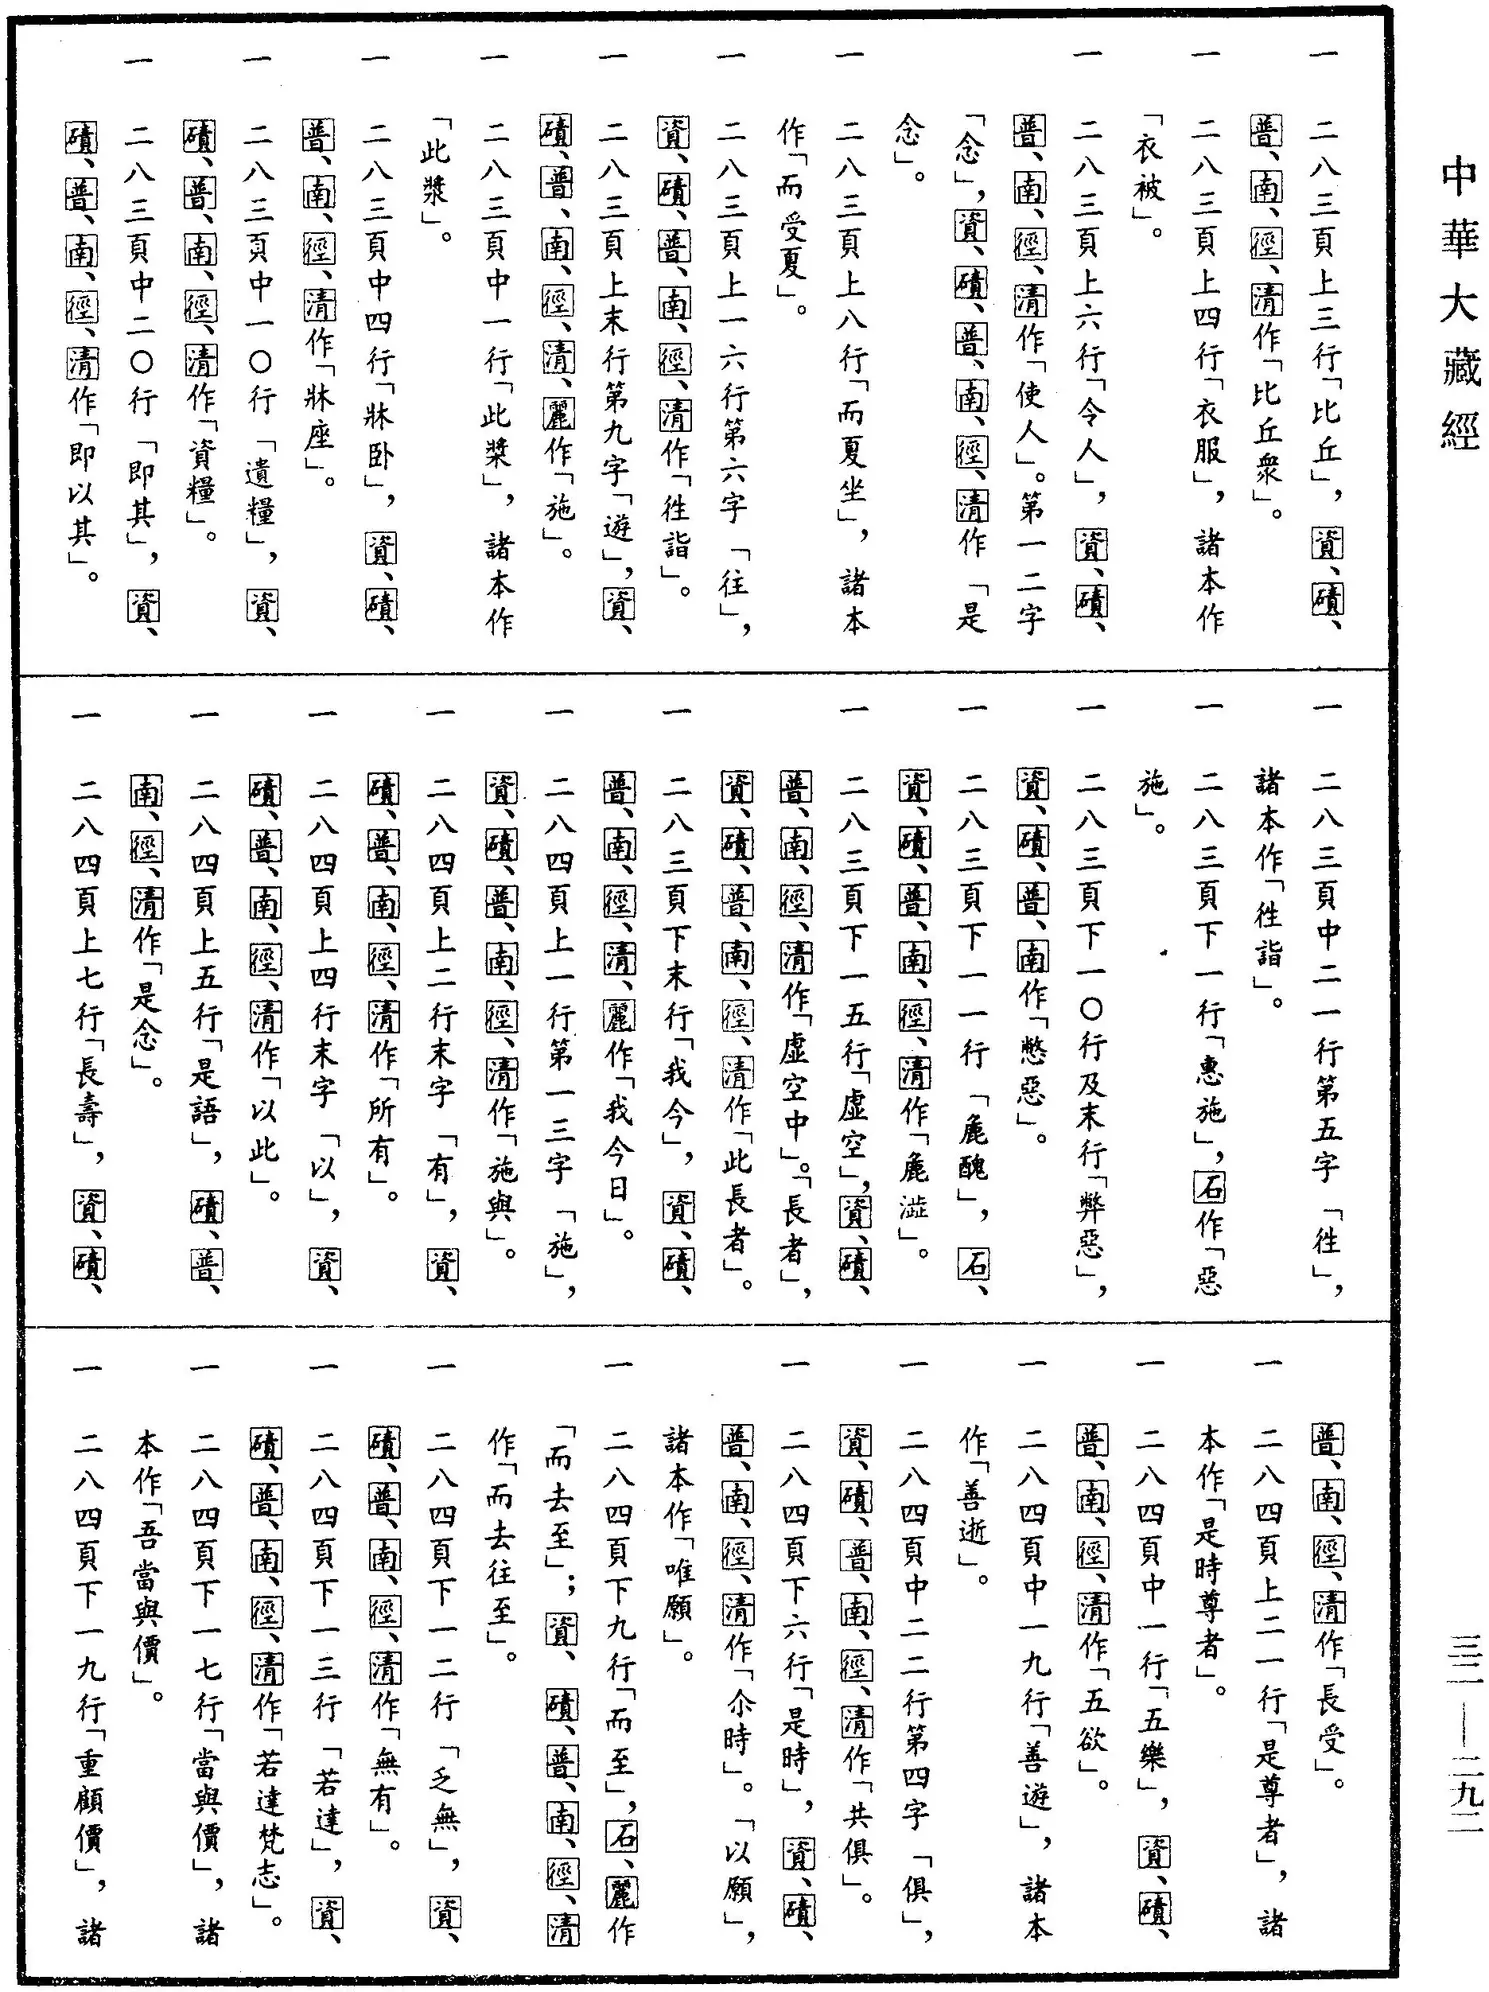 中華大藏經
三二—二九二
一　二八三頁上三行「比丘」，資、磧、
普、南、徑、清作「比丘衆」。
一　二八三頁上四行「衣服」，諸本作
「衣被」。
一　二八三頁上六行「令人」，資、磧、
普、南、徑、清作「使人」。第一二字
「念」，資、磧、普、南、徑、清作「是
念」。
一　二八三頁上八行「而夏坐」，諸本
作「而受夏」。
一　二八三頁上一六行第六字「往」，
資、磧、普、南、徑、清作「徃詣」。
一　二八三頁上末行第九字「遊」，資、
磧、普、南、徑、清、麗作「施」。
一　二八三頁中一行「此槳」，諸本作
「此漿」。
一　二八三頁中四行「牀卧」，資、磧、
普、南、徑、清作「牀座」。
一　二八三頁中一〇行「遺糧」，資、
磧、普、南、徑、清作「資糧」。
一　二八三頁中二〇行「即其」，資、
磧、普、南、徑、清作「即以其」。
一　二八三頁中二一行第五字「徃」，
諸本作「徃詣」。
一　二八三頁下一行「惠施」，石作「惡
施」。
一　二八三頁下一〇行及末行「弊惡」，
資、磧、普、南作「憋惡」。
一　二八三頁下一一行「麁醜」，石、
資、磧、普、南、徑、清作「麁澁」。
一　二八三頁下一五行「虛空」，資、磧、
普、南、徑、清作「虛空中」。「長者」，
資、磧、普、南、徑、清作「此長者」。
一　二八三頁下末行「我今」，資、磧、
普、南、徑、清、麗作「我今日」。
一　二八四頁上一行第一三字「施」，
資、磧、普、南、徑、清作「施與」。
一　二八四頁上二行末字「有」，資、
磧、普、南、徑、清作「所有」。
一　二八四頁上四行末字「以」，資、
磧、普、南、徑、清作「以此」。
一　二八四頁上五行「是語」，磧、普、
南、徑、清作「是念」。
一　二八四頁上七行「長壽」，資、磧、
普、南、徑、清作「長受」。
一　二八四頁上二一行「是尊者」，諸
本作「是時尊者」。
一　二八四頁中一行「五樂」，資、磧、
普、南、徑、清作「五欲」。
一　二八四頁中一九行「善遊」，諸本
作「善逝」。
一　二八四頁中二二行第四字「俱」，
資、磧、普、南、徑、清作「共俱」。
一　二八四頁下六行「是時」，資、磧、
普、南、徑、清作「尒時」。「以願」，
諸本作「唯願」。
一　二八四頁下九行「而至」，石、麗作
「而去至」；資、磧、普、南、徑、清
作「而去往至」。
一　二八四頁下一二行「乏無」，資、
磧、普、南、徑、清作「無有」。
一　二八四頁下一三行「若達」，資、
磧、普、南、徑、清作「若達梵志」。
一　二八四頁下一七行「當與價」，諸
本作「吾當與價」。
一　二八四頁下一九行「重顧價」，諸